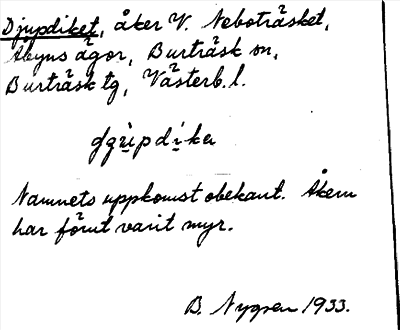 Djupdiket, åker V. Neboträsket,
Åbyns ägor, Burträsk sn,
Burträsk tg, Västerb. l.
Namnets uppkomst obekant. Åkern
har förut varit myr.
B. Nygren 1933.